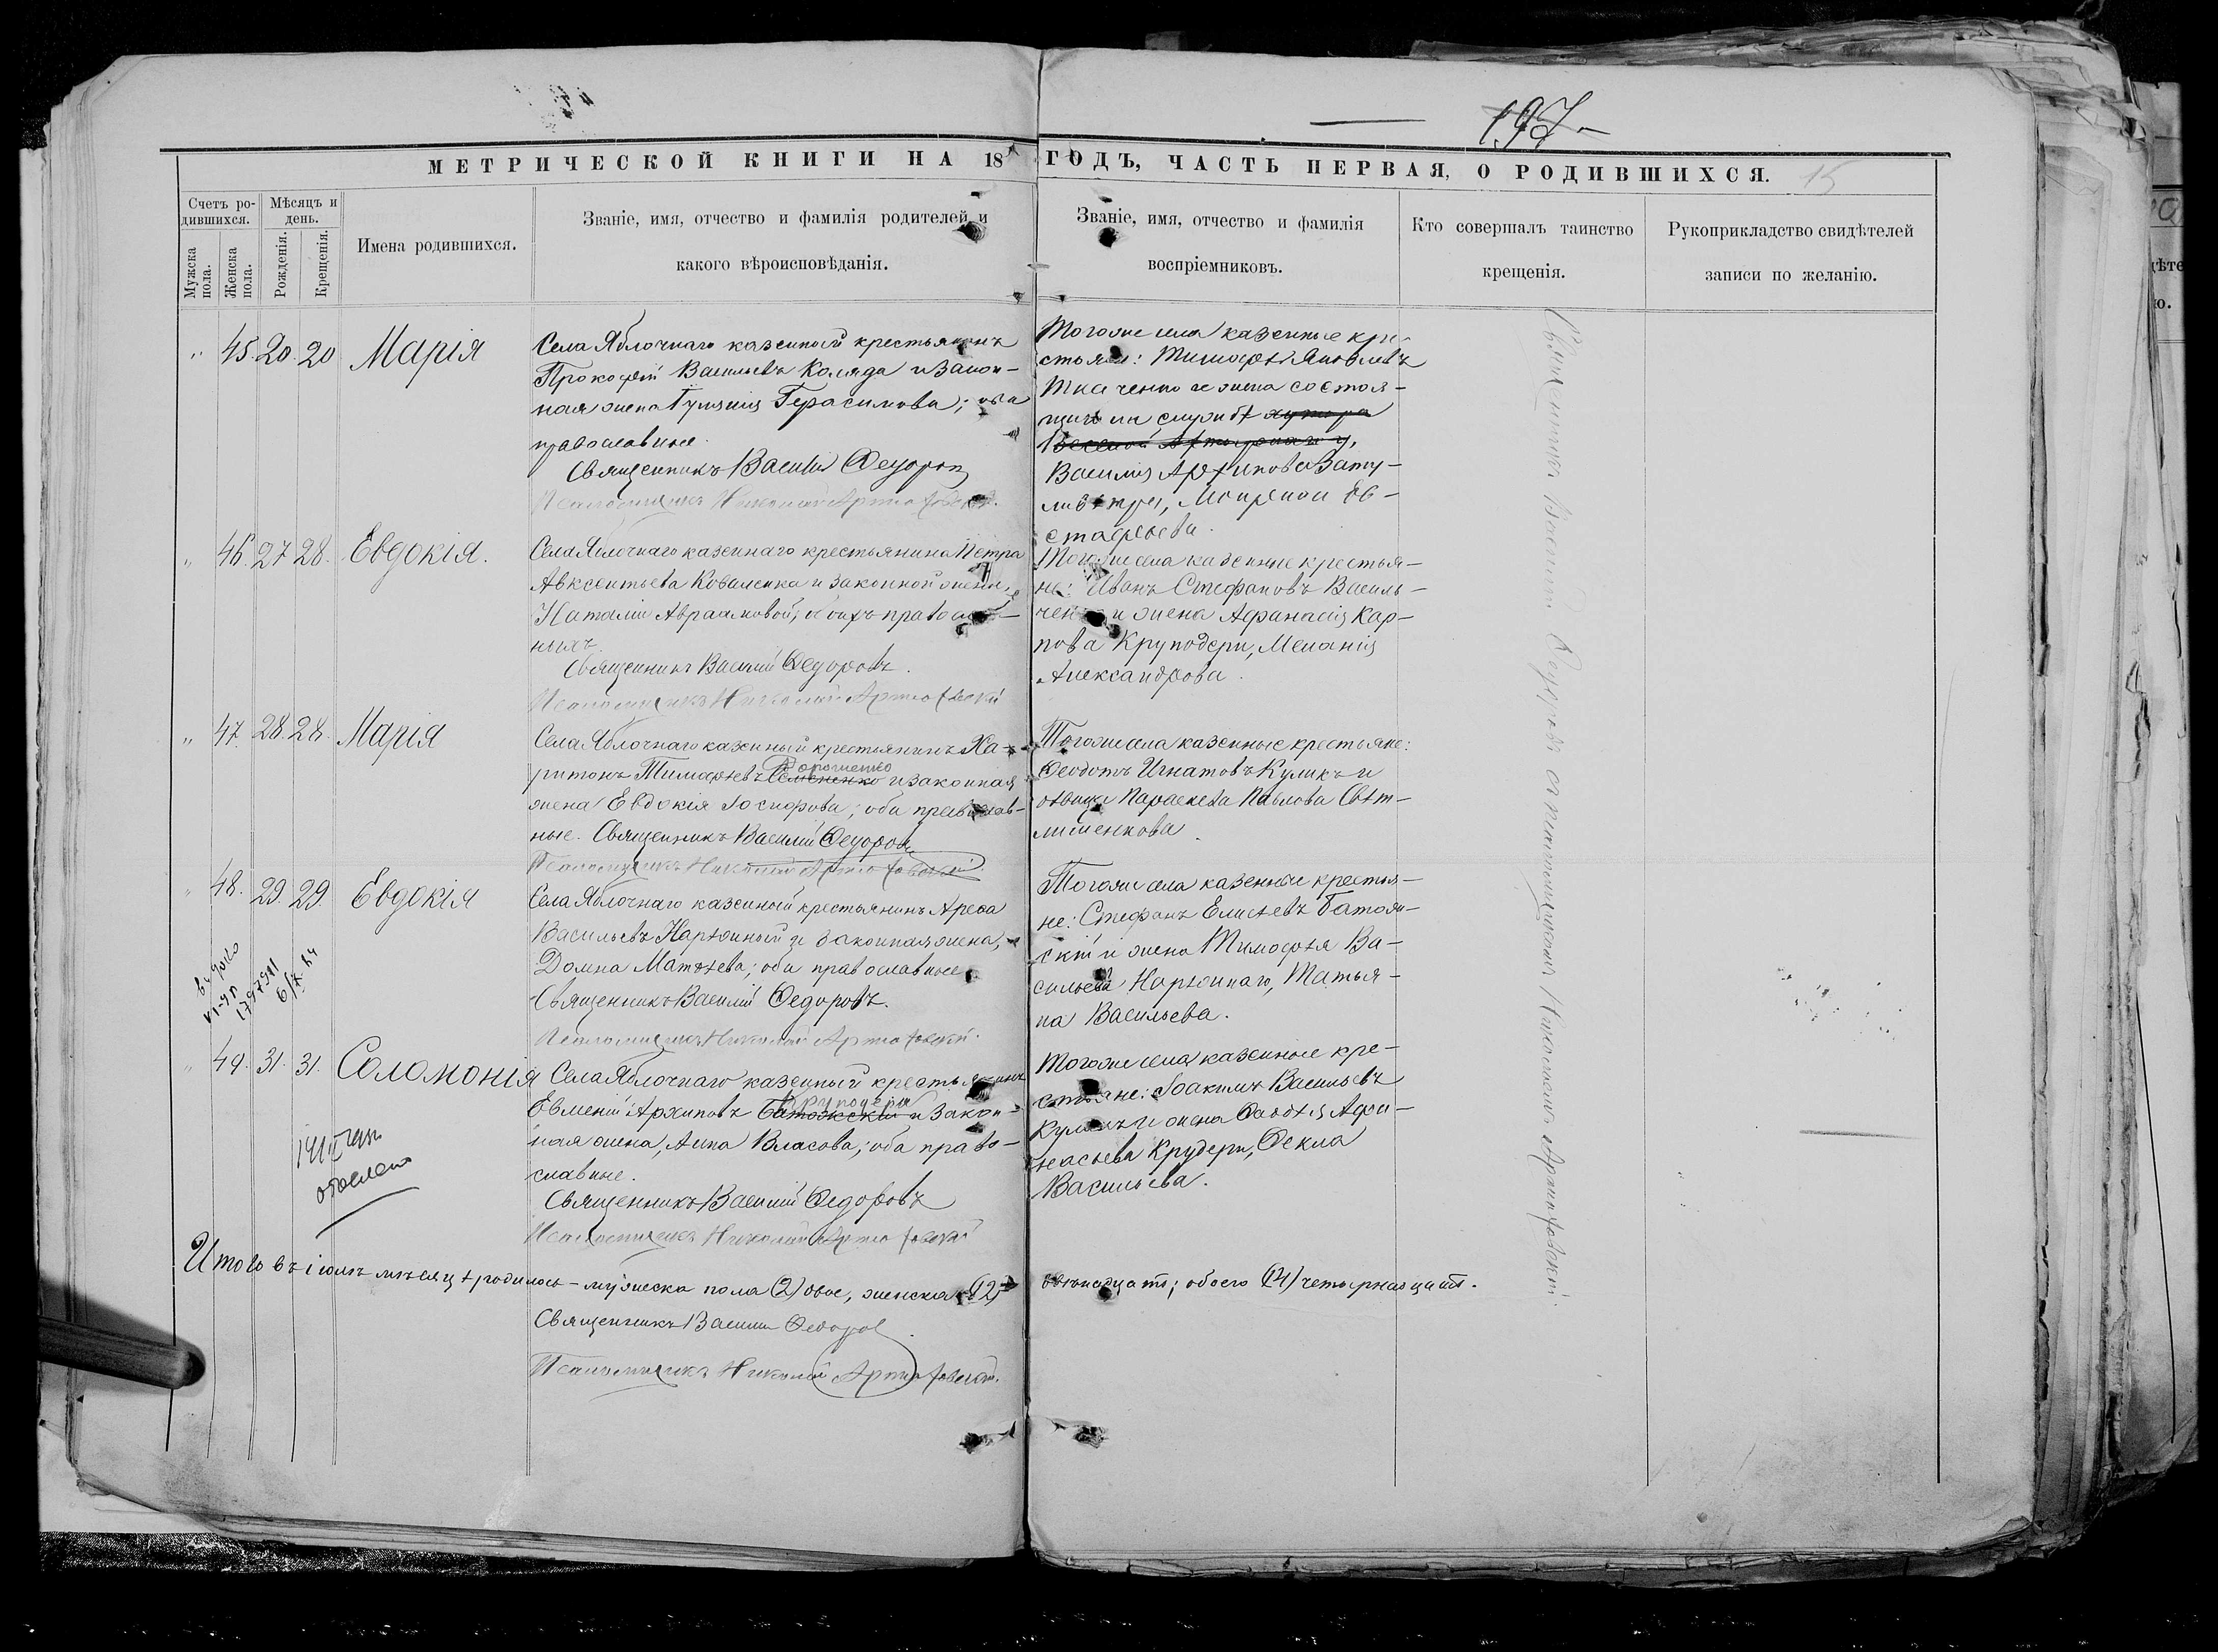 197
МЕТРИЧЕСКОЙ КНИГИ НА 18 ГОДЪ, ЧАСТЬ ПЕРВАЯ, О РОДИВШИХСЯ.
15
Счетъ родившихся.
Мужска пола.
Женска пола.
Мѣсяцъ и день.
Рожденія.
Крещенія.
Имена родившихся.
Званіе, имя, отчество и фамилія родителей и
какого вѣроисповѣданія.
Званіе, имя, отчество и фамилія
воспріемниковъ.
Кто совершалъ таинство
крещенія.
Рукоприкладство свидѣтелей
записи по желанію.
" 45. 20. 20 Марія
Села Яблочнаго казенный крестьянинъ
Прокофій Васильевъ Коляда и закон-
ная жена Гликерія Герасимова; оба
православные.
Священникъ Василій Федоровъ
Псаломщикъ Николай Артюховскій.
Тогоже села казенные кре-
стьяне: Тимофей Яковлевъ
Ткаченко и жена состоя-
щаго на службѣ хутора
Василія Архипова
Мокрина Ев-
стафьева.
" 46. 27 28. Евдокія.
Села Яблочнаго казеннаго крестьянина Петра
Авксентьева Коваленка и законной жены,
Наталіи Авраамовой; обоихъ православ-
ныхъ.
Священникъ Василій Федоровъ.
Псаломщикъ Николай Артюховскій
Тогоже села казенные крестья-
не: Иванъ Стефановъ Василь-
ченко и жена Афанасія Кар-
пова Круподери, Меланія
Александрова.
" 47. 28. 28. Марія
Села Яблочнаго казенный крестьянинъ Ха-
ритонъ Тимофеевъ Семененко и законная
Дорошенко
жена Евдокія Іосифова; оба православ-
ные. Священникъ Василій Федоровъ
Псаломщикъ Николай Артюховскій.
Тогоже села казенные крестьяне:
Феодотъ Игнатовъ Куликъ и
дѣвица Параскева Павлова Свѣт-
лишенкова.
" 48. 29. 29. Евдокія
Села Яблочнаго казенный крестьянинъ Арефа
Васильевъ Нарѣжный и законная жена,
Домна Матѳеева; оба православные.
Священникъ Василій Федоровъ.
Псаломщикъ Николай Артюховскій.
Тогоже села казенные крестья-
не: Стефанъ Елисеевъ Батож-
скій и жена Тимофея Ва-
сильева Нарѣжнаго, Татья-
на Васильева.
" 49. 31. 31. Соломонія
Села Яблочнаго казенный крестьянинъ
Евменій Архиповъ Батожскій и закон-
Круподеря
ная жена, Анна Власова; оба право-
славные.
Священникъ Василій Федоровъ
Псаломщикъ Николай Артюховскій
Тогоже села казенные кре-
стьяне: Іоакимъ Васильевъ
Куликъ и жена Фаддея Афа-
насьева Крудери, Фекла
Васильева.
Итого въ іюлѣ мѣсяцѣ родилось - мужеска пола (2) двое, женска (12) двѣнадцать; обоего (14) четырнадцать.
Священникъ Василій Федоровъ
Псаломщикъ Николай Артюховскій.
Священникъ Василій Федоровъ съ псаломщикомъ Николаемъ Артюховскимъ.